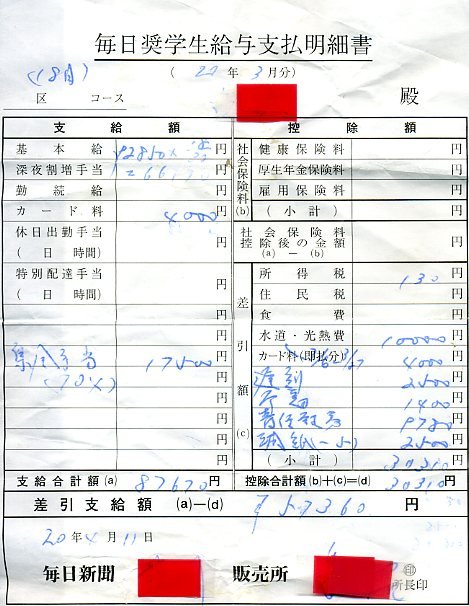 毎日奨学生給与支払明細書
(18日)
(20年3月分)
区 コース 殿
支給額 控除額
基本給 円 社会保険料(b) 健康保険料 円
深夜割増手当 円 厚生年金保険料 円
勤続給 円 雇用保険料 円
カード料 4000 円 (小計) 円
休日出勤手当 (日 時間) 円 社会保険料控除後の金額 (a)−(b) 円
特別配達手当 (日 時間) 円 差引額(c) 所得税 130 円
円 住民税 円
円 食費 円
円 水道・光熱費 10000 円
集金手当 17500 円 カード料(即払分) 4000 円
(70%) 円 遅刻 2500 円
円 不着 1400 円
円 円
円 2500 円
円 (小計) 30310 円
支給合計額(a) 87670円 控除合計額(b)+(c)=(d) 30310 円
差引支給額 (a)―(d) ¥57360 円
20年4月11日
毎日新聞 販売所 ㊞
所長印